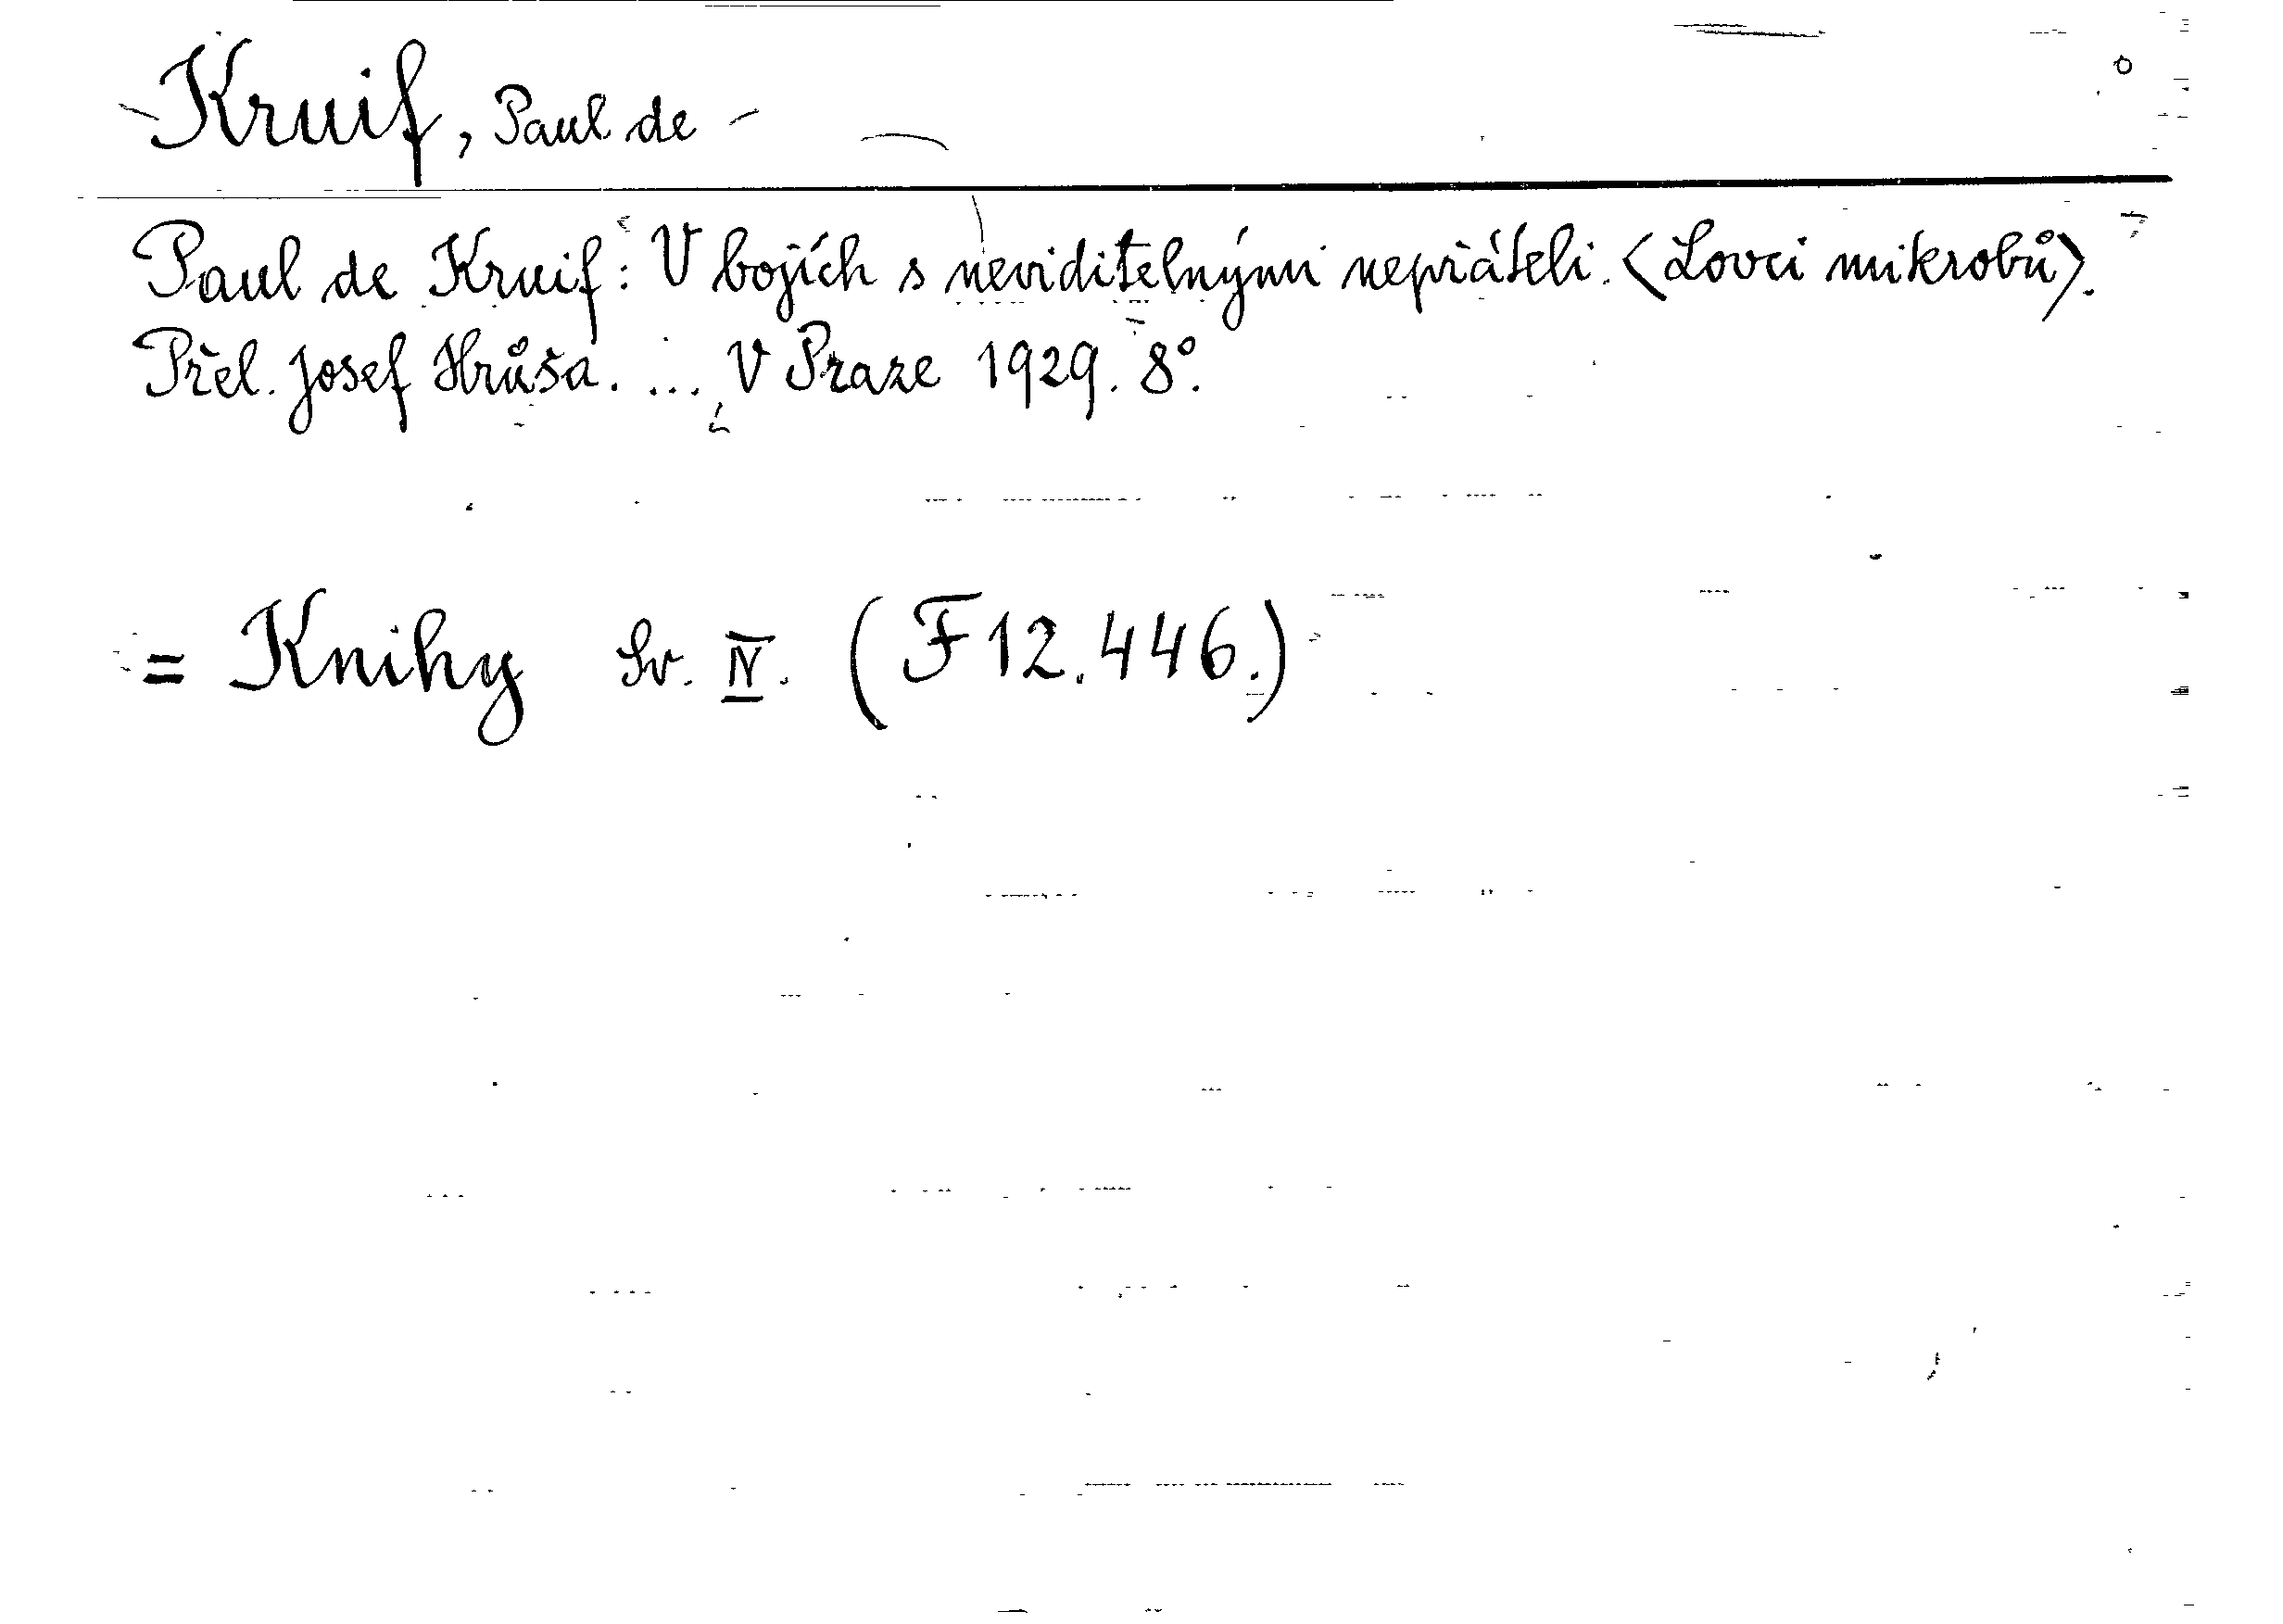 Kruif, Paul de -
Paul de Kruif: V bojích s neviditelnými nepřáteli. <Lovci mikrobů>.
Přel. Josef Hrůša. ... V Praze 1929. 8°.
= Knihy Sv. IV. (F 12.446.)